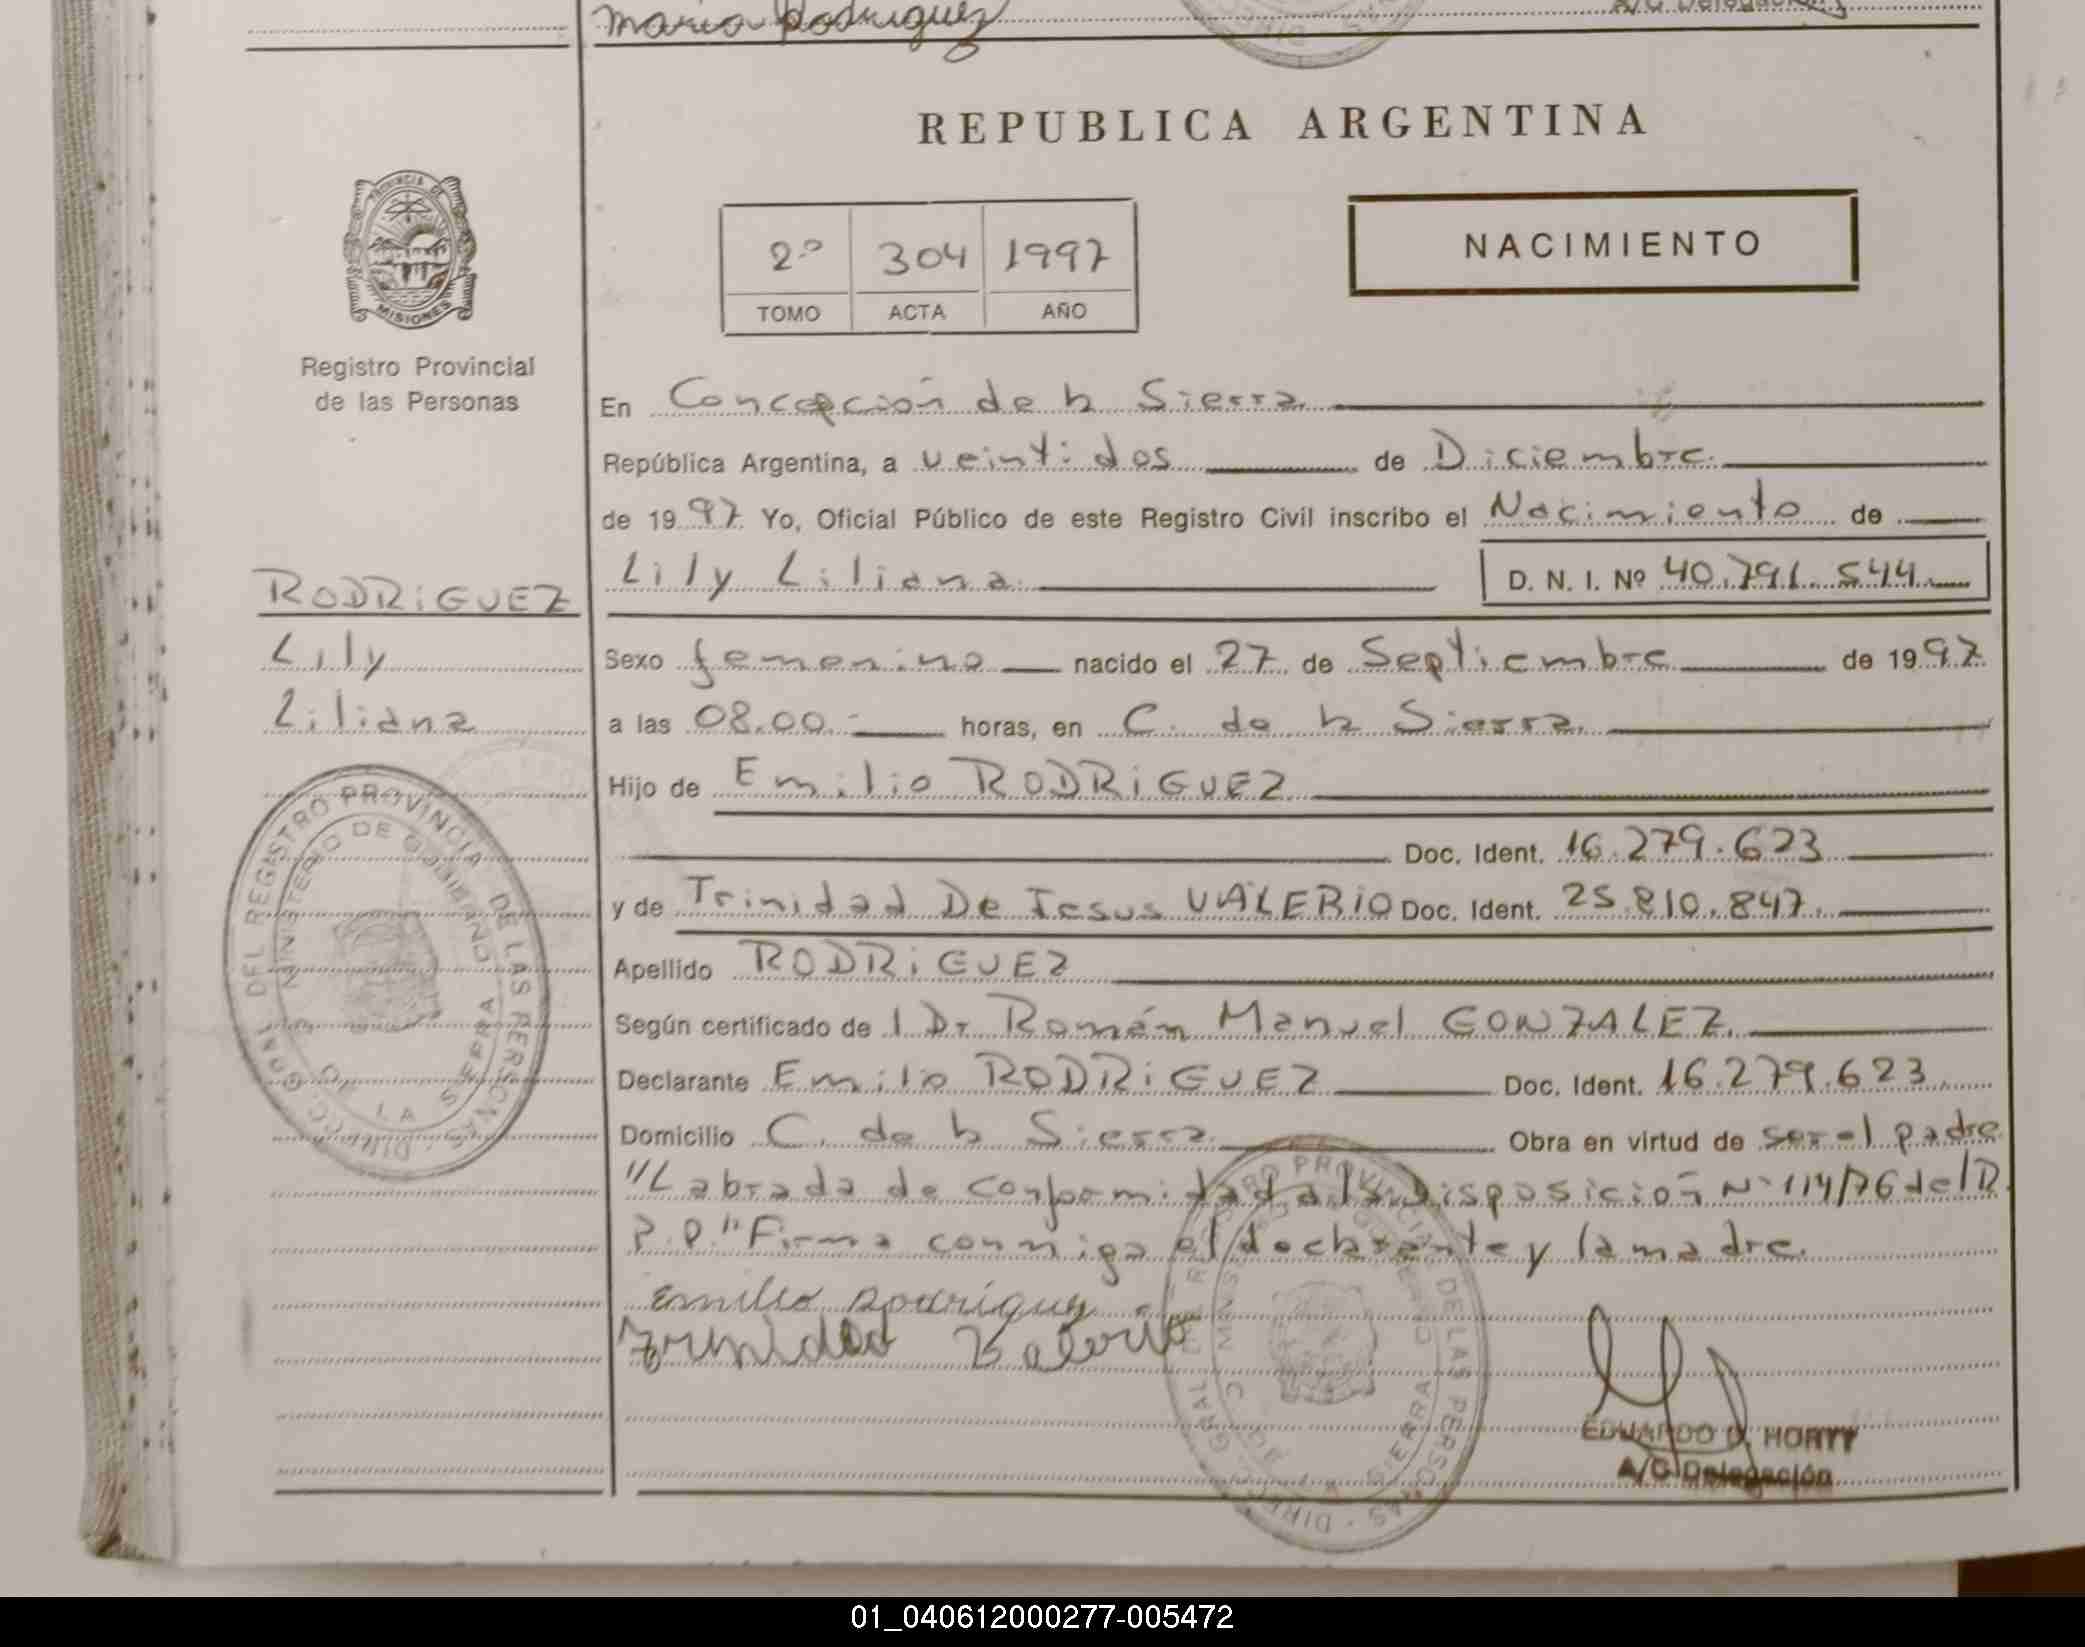 Maria Rodriguez
A/C Delegación
REPUBLICA ARGENTINA
PROVINCIA DE
MISIONES
Registro Provincial
de las Personas
2º 304 1997
TOMO ACTA AÑO
NACIMIENTO
En Concepción de la Sierra
República Argentina, a veintidos de Diciembre
de 1997 Yo, Oficial Público de este Registro Civil inscribo el Nacimiento de
Lily Liliana D. N. I. Nº 40.791.544
RODRIGUEZ
Lily
Liliana
Sexo femenino nacido el 27 de Septiembre de 1997
a las 08.00 horas, en C. de la Sierra
Hijo de Emilio RODRIGUEZ
Doc. Ident. 16.279.623
y de Trinidad De Jesus VALERIO Doc. Ident. 25.810.847
Apellido RODRIGUEZ
Según certificado de l Dr Román Manuel GONZALEZ
Declarante Emilio RODRIGUEZ Doc. Ident. 16.279.623
Domicilio C. de la Sierra Obra en virtud de ser el padre
"Labrada de conformidad a la Disposición Nº 114/76 del D.
P.P." Firma conmigo el declarante y la madre.
Emilio Rodriguez
Trinidad Valerio
DIREC. GRAL. DEL REGISTRO PROVINCIAL DE LAS PERSONAS
MINISTERIO DE GOBIERNO
C. DE LA SIERRA
DIREC. GRAL. DEL REGISTRO PROVINCIAL DE LAS PERSONAS
MINISTERIO DE GOBIERNO
C. DE LA SIERRA
EDUARDO D. HORTT
A/C Delegación
01_040612000277-005472